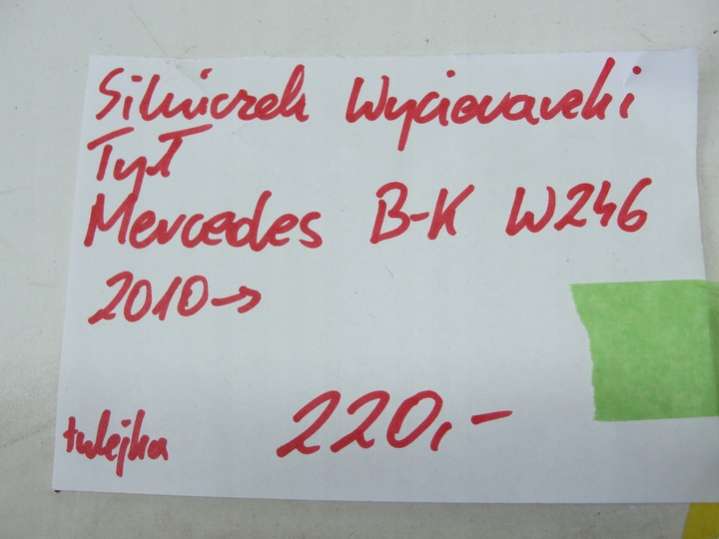 Silniczek Wycieraczki
Tył
Mercedes B-K W246
2010→
220,-
tulejka